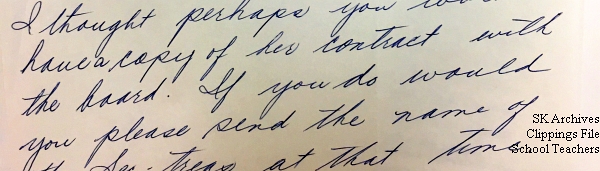 I thought perhaps you
have a copy of her contract with
the board. If you do would
you please send the name of
Sec-treas at that time
SK Archives
Clippings File
School Teachers